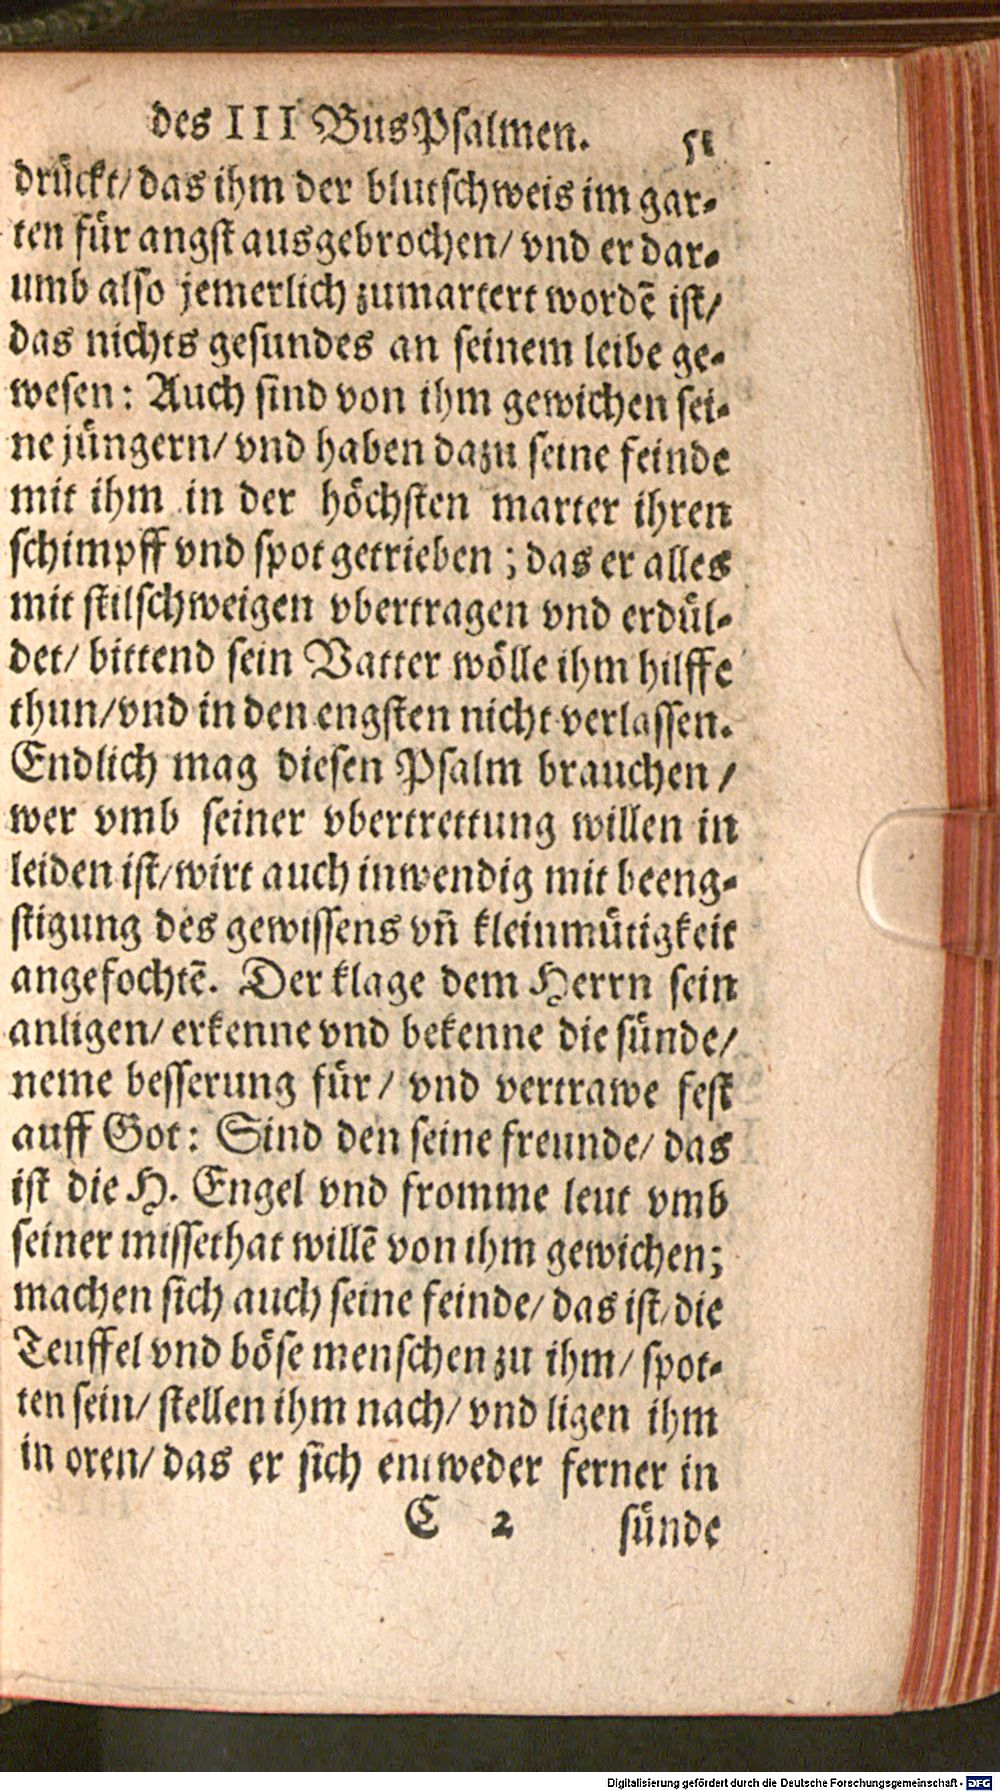 des III BusPsalmen. 51
drückt/ das ihm der blutschweis im gar-
ten für angst ausgebrochen/ vnd er dar-
umb also jemerlich zumartert wordē ist/
das nichts gesundes an seinem leibe ge-
wesen: Auch sind von ihm gewichen sei-
ne jüngern/ vnd haben dazu seine feinde
mit ihm in der höchsten marter ihren
schimpff vnd spot getrieben; das er alles
mit stilschweigen vbertragen vnd erdül-
det/ bittend sein Vatter wölle ihm hilffe
thun/ vnd in den engsten nicht verlassen.
Endlich mag diesen Psalm brauchen/
wer vmb seiner vbertrettung willen in
leiden ist/ wirt auch inwendig mit beeng-
stigung des gewissens vn̄ kleinmütigkeit
angefochtē. Der klage dem Herrn sein
anligen/ erkenne vnd bekenne die sünde/
neme besserung für/ vnd vertrawe fest
auff Got: Sind den seine freunde/ das
ist die H. Engel vnd fromme leut vmb
seiner missethat willē von ihm gewichen;
machen sich auch seine feinde/ das ist/ die
Teuffel vnd böse menschen zu ihm/ spot-
ten sein/ stellen ihm nach/ vnd ligen ihm
in oren/ das er sich entweder ferner in
C 2 sünde
Digitalisierung gefördert durch die Deutsche Forschungsgemeinschaft - DFG